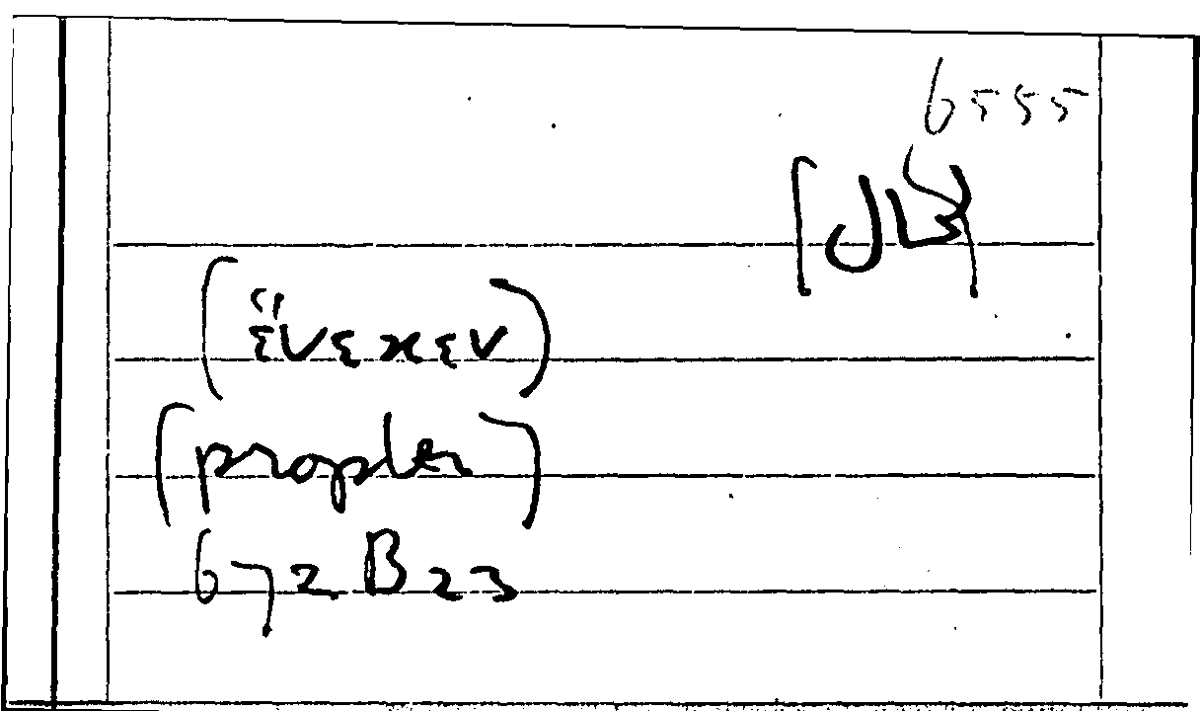 6555
(ἕνεκεν)
(propter)
672 B 23